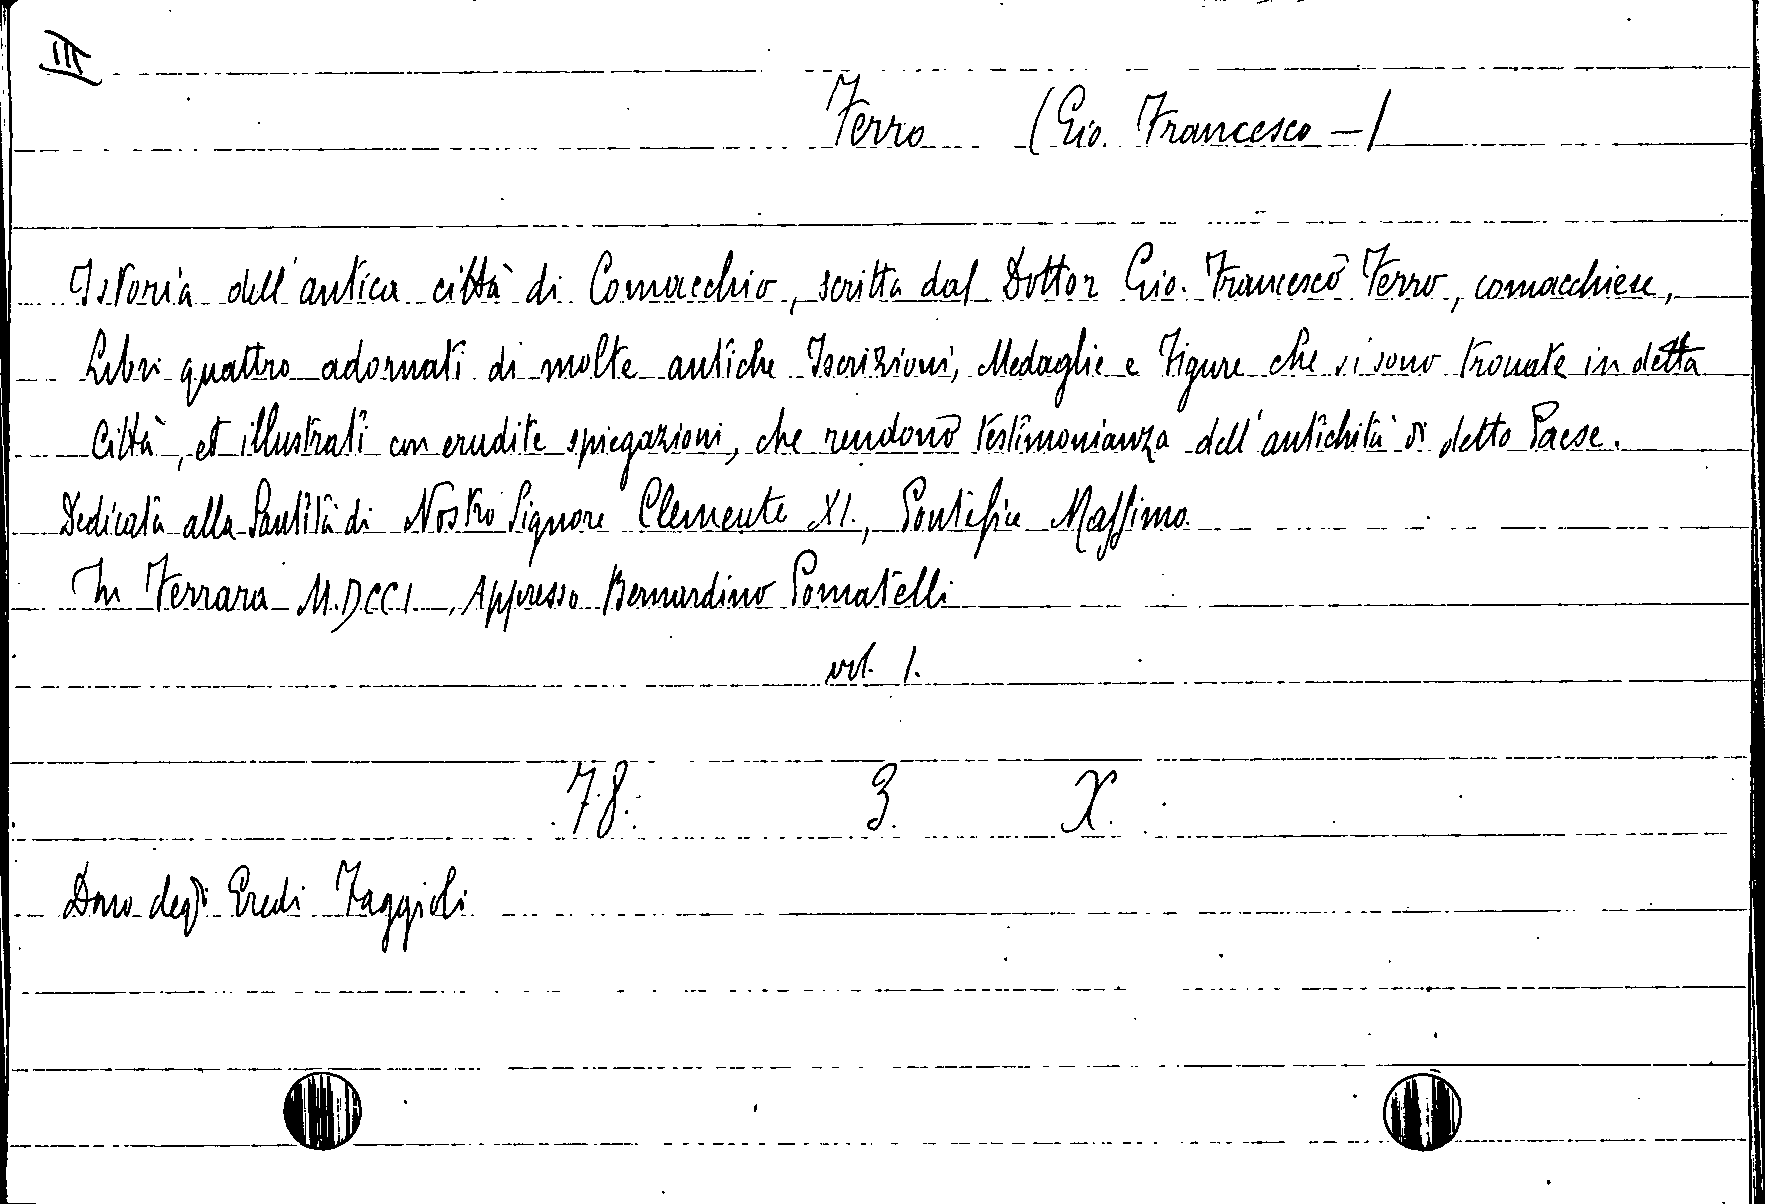 III
Ferro (Gio. Francesco -)
Istoria dell'antica città di Comacchio, scritta dal Dottor Gio. Francesco Ferro, comacchiese,
Libri quattro adornati di molte antiche Iscrizioni, Medaglie e Figure che si sono trouate in detta
Città, et illustrati con erudite spiegazioni, che rendono testimonianza dell'antichità di detto Paese.
Dedicata alla Santità di Nostro Signore Clemente XI., Pontefice Massimo.
In Ferrara M.DCCI., Appresso Bernardino Pomatelli
vol. 1.
78. 3. X.
Dono degli Eredi Faggioli